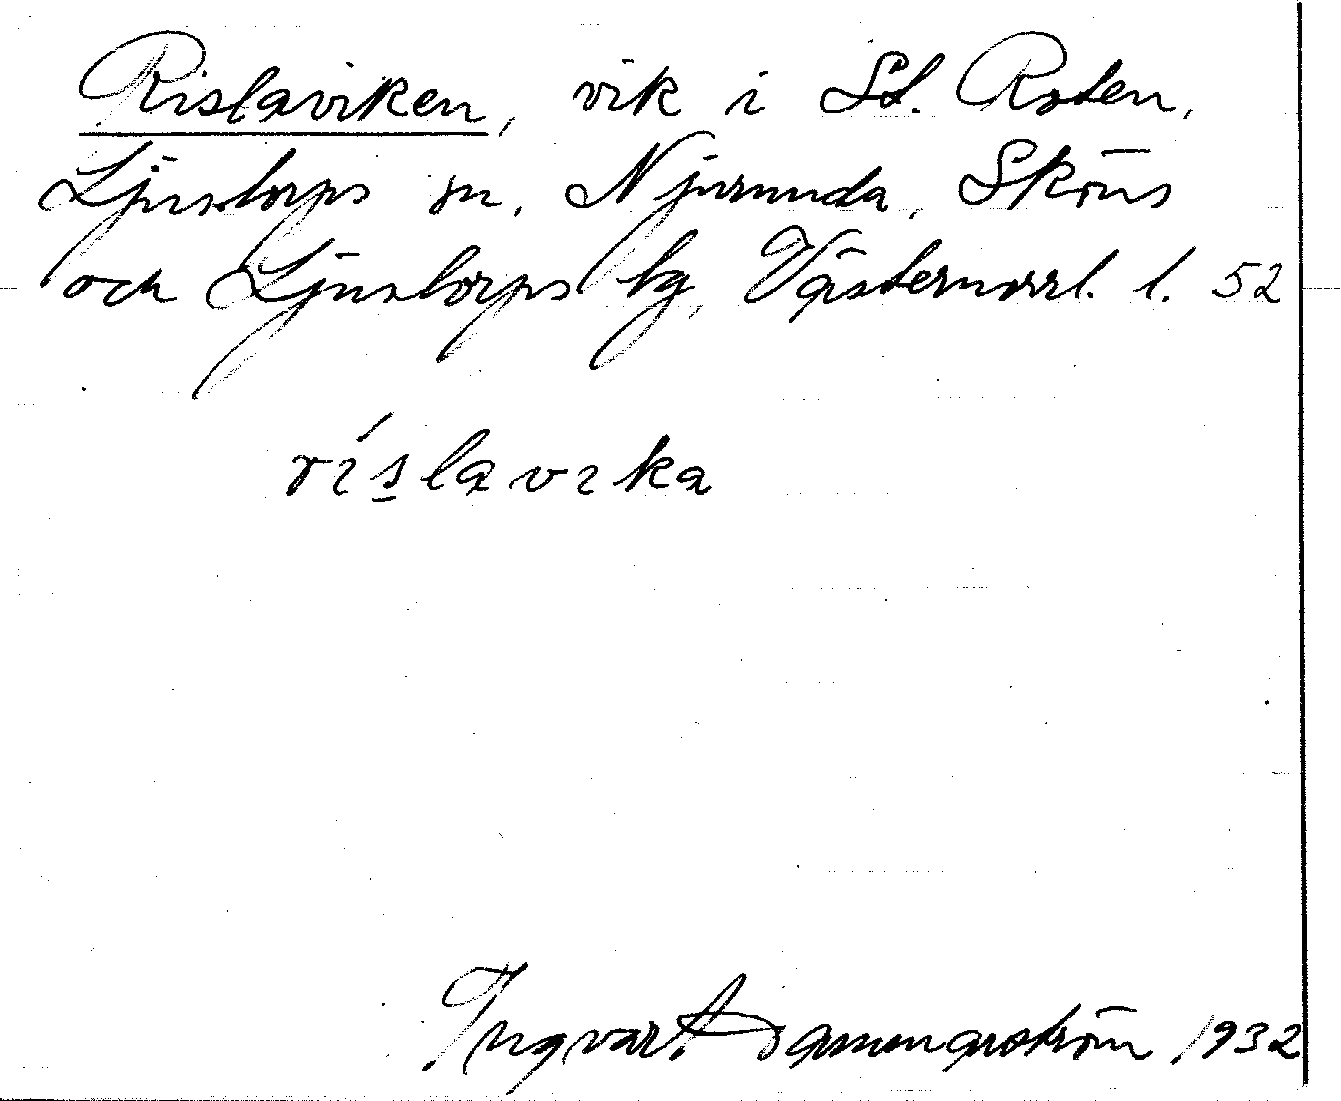 Rislaviken, vik i St. Roten,
Ljustorps sn, Njurunda, Sköns
och Ljustorps tg, Västernorrl. l. 52
ríslavika
Ingvar 1932